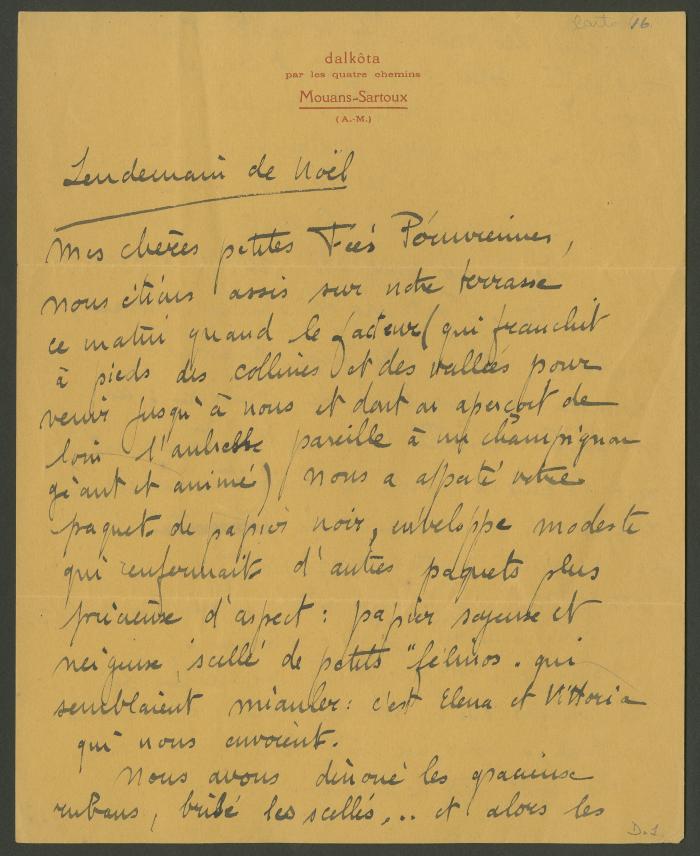 16
dalkôta
par les quatre chemins
Mouans-Sartoux
(A.-M.)
Lendemain de Noël
Mes chères petites Fées Péruviennes,
nous étions assis sur notre terrasse
ce matin quand le facteur (qui franchit
à pieds des collines et des vallées pour
venir jusqu'à nous et dont on aperçoit de
loin l'ombrelle pareille à un champignon
géant et animé) nous a apporté votre
paquet de papier noir, enveloppe modeste
qui renfermait d'autres paquets plus
précieux d'aspect : papier soyeux et
neigeux, scellé de petits "félinos" qui
semblaient miauler : c'est Elena et Vittoria
qui nous envoient.
Nous avons dénoué les gracieux
rubans, brisé les scellés,... et alors les
D.1